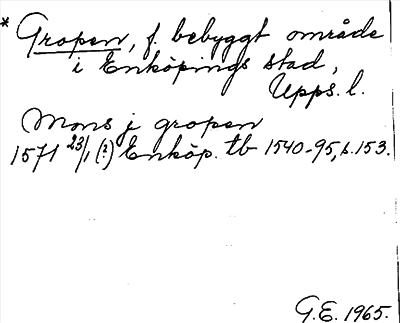 * Gropen, f. bebyggt område
i Enköpings stad,
Upps. l.
Mons j gropen
1571 23/1 (?) Enköp. tb 1540-95, s. 153.
G.E. 1965.